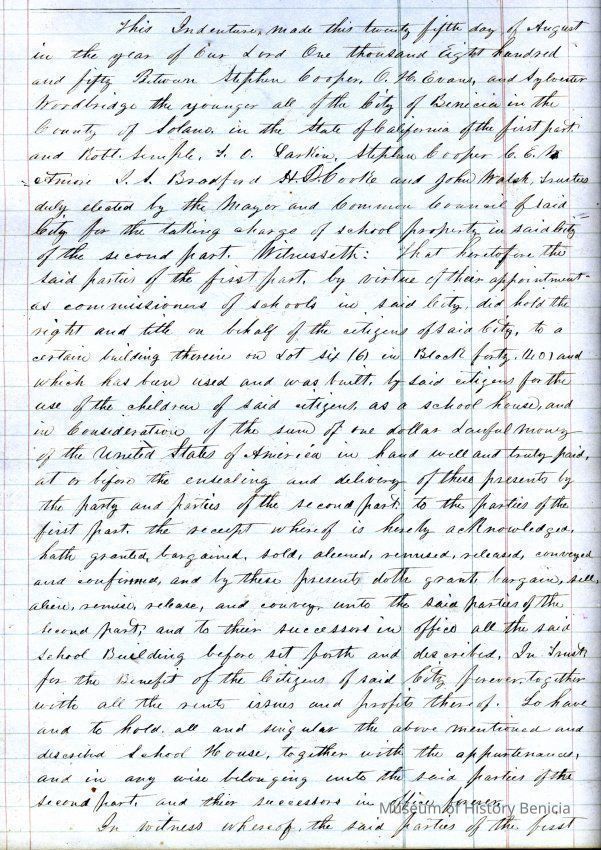 This Indenture, made this twenty fifth day of August
in the year of Our Lord One thousand Eight hundred
and fifty Between Stephen Cooper, O. H. Evans, and Sylvester
Woodbridge the younger all of the City of Benicia in the
County of Solano. in the State of California of the first part.
and Robt. Semple, T. O. Larkin, Stephen Cooper C. E.
J. S. Bradford H. D. Cooke and John Walsh, Trustees
duly elected by the Mayor and Common Council of said
City for the taking charge of school property in said City
of the second part. Witnesseth: That heretofore the
said parties of the first part, by virtue of their appointment
as commissioners of schools in said City, did hold the
right and title on behalf of the citizens of said City, to a
certain building therein on Lot six (6) in Block forty (40) and
which has been used and was built, by said citizens for the
use of the children of said citizens, as a school house, and
in Consideration of the sum of one dollar Lawful money
of the United States of America in hand well and truly paid,
at or before the ensealing and delivery of these presents by
the party and parties of the second part. to the parties of the
first part. the receipt whereof is hereby acknowledged,
hath granted, bargained, sold, aliened, remised, released, conveyed
and confirmed, and by these presents doth grant, bargain, sell,
alien, remise, release, and convey unto the said parties of the
second part, and to their successors in office all the said
School Building before set forth and described, In Trust
for the Benefit of the Citizens of said City forever, together
with all the rents issues and profits thereof. To have
and to hold. all and singular the above mentioned and
described School House, together with the appurtenances,
and in any wise belonging unto the said parties of the
second part, and their successors in office forever.
Museum of History Benicia
In witness whereof, the said parties of the first